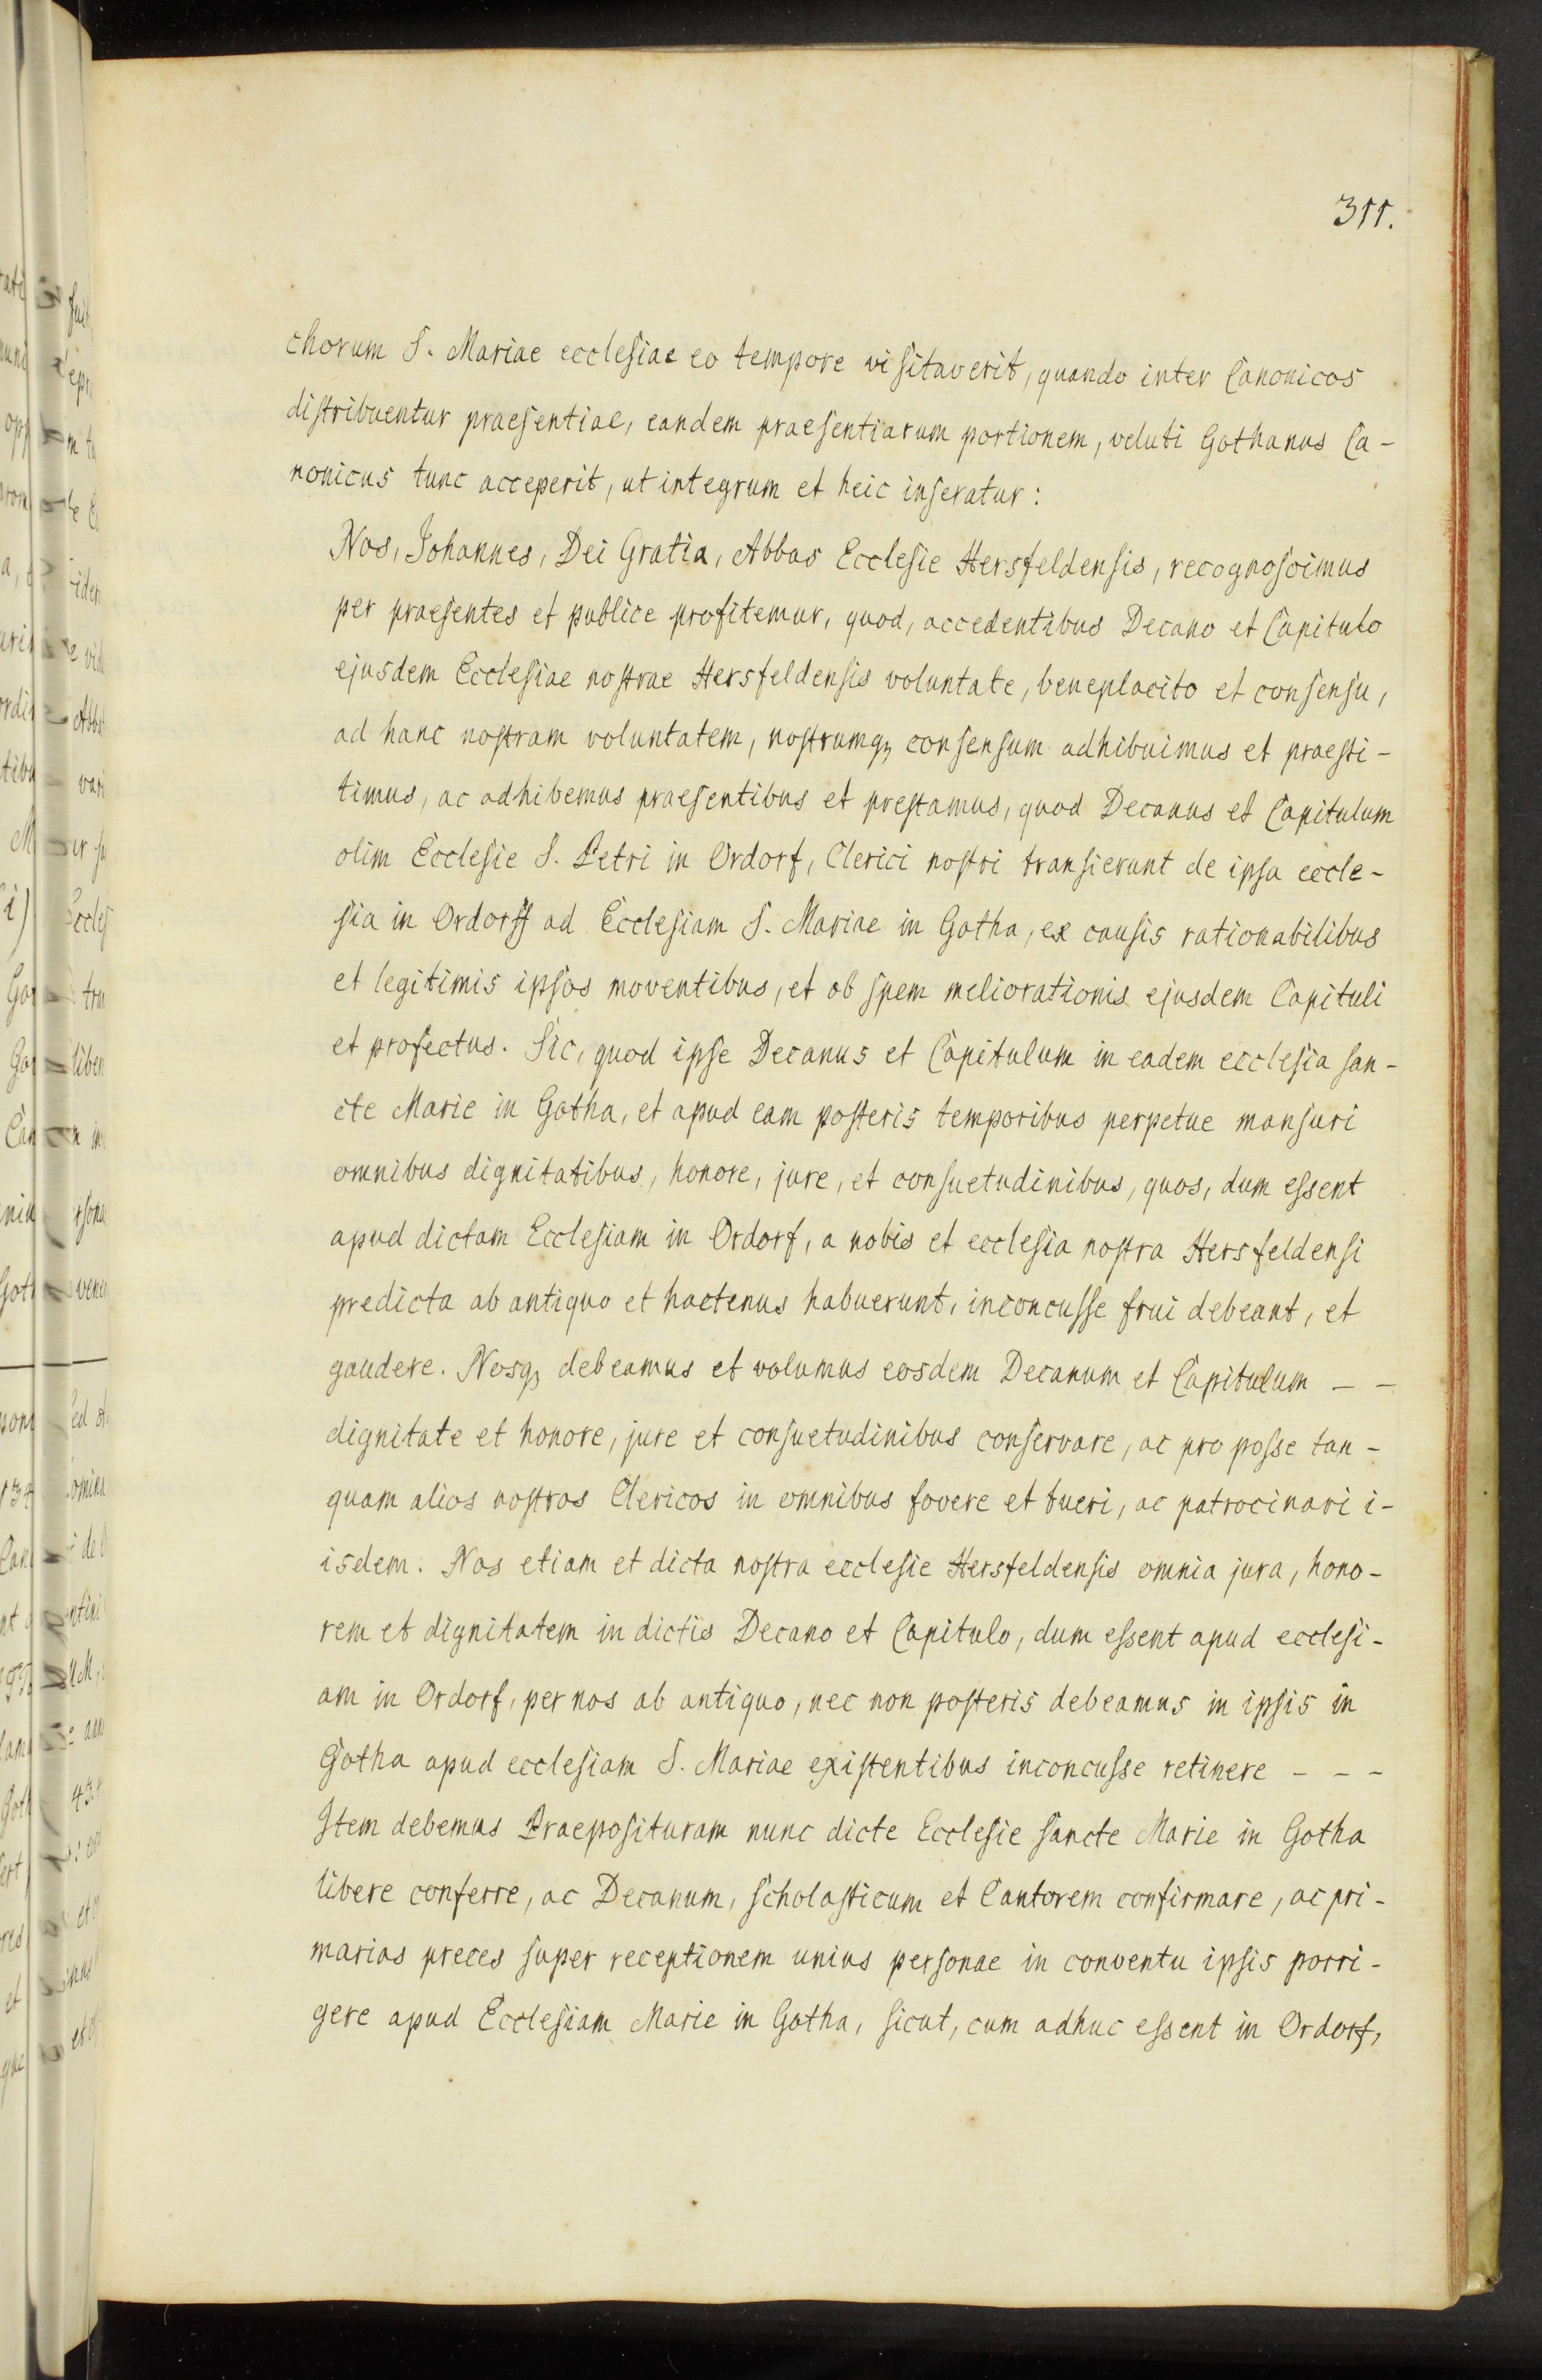 311.
chorum S. Mariae ecclesiae eo tempore visitaverit, quando inter Canonicos
distribuentur praesentiae, eandem praesentiarum portionem, veluti Gothanus Ca-
nonicus tunc acceperit, ut integrum et heic inseratur:
Nos, Johannes, Dei Gratia, Abbas Ecclesie Hersfeldensis, recognoscimus
per praesentes et publice profitemur, quod, accedentibus Decano et Capitulo
ejusdem Ecclesiae nostrae Hersfeldensis voluntate, beneplacito et consensu,
ad hanc nostram voluntatem, nostrumq, consensum adhibuimus et praesti-
timus, ac adhibemus praesentibus et prestamus, quod Decanus et Capitulum
olim Ecclesie S. Petri in Ordorf, Clerici nostri transierunt de ipsa eccle-
sia in Ordorff ad Ecclesiam S. Mariae in Gotha, ex causis rationabilibus
et legitimis ipsos moventibus, et ob spem meliorationis ejusdem Capituli
et profectus. Sic, quod ipse Decanus et Capitulum in eadem ecclesia san-
cte Marie in Gotha, et apud eam posteris temporibus perpetue mansuri
omnibus dignitatibus, honore, jure, et consuetudinibus, quos, dum essent
apud dictam Ecclesiam in Ordorf, a nobis et ecclesia nostra Hersfeldensi
predicta ab antiquo et hactenus habuerunt, inconcusse frui debeant, et
gaudere. Nosq, debeamus et volumus eosdem Decanum et Capitulum - -
dignitate et honore, jure et consuetudinibus conservare, ac pro posse tan-
quam alios nostros Clericos in omnibus fovere et tueri, ac patrocinari i-
isdem. Nos etiam et dicta nostra ecclesie Hersfeldensis omnia jura, hono-
rem et dignitatem in dictis Decano et Capitulo, dum essent apud ecclesi-
am in Ordorf, per nos ab antiquo, nec non posteris debeamus in ipsis in
Gotha apud ecclesiam S. Mariae existentibus inconcusse retinere - - -
Item debemus Praeposituram nunc dicte Ecclesie sancte Marie in Gotha
libere conferre, ac Decanum, scholasticum et Cantorem confirmare, ac pri-
marias preces super receptionem unius personae in conventu ipsis porri-
gere apud Ecclesiam Marie in Gotha, sicut, cum adhuc essent in Ordorf,